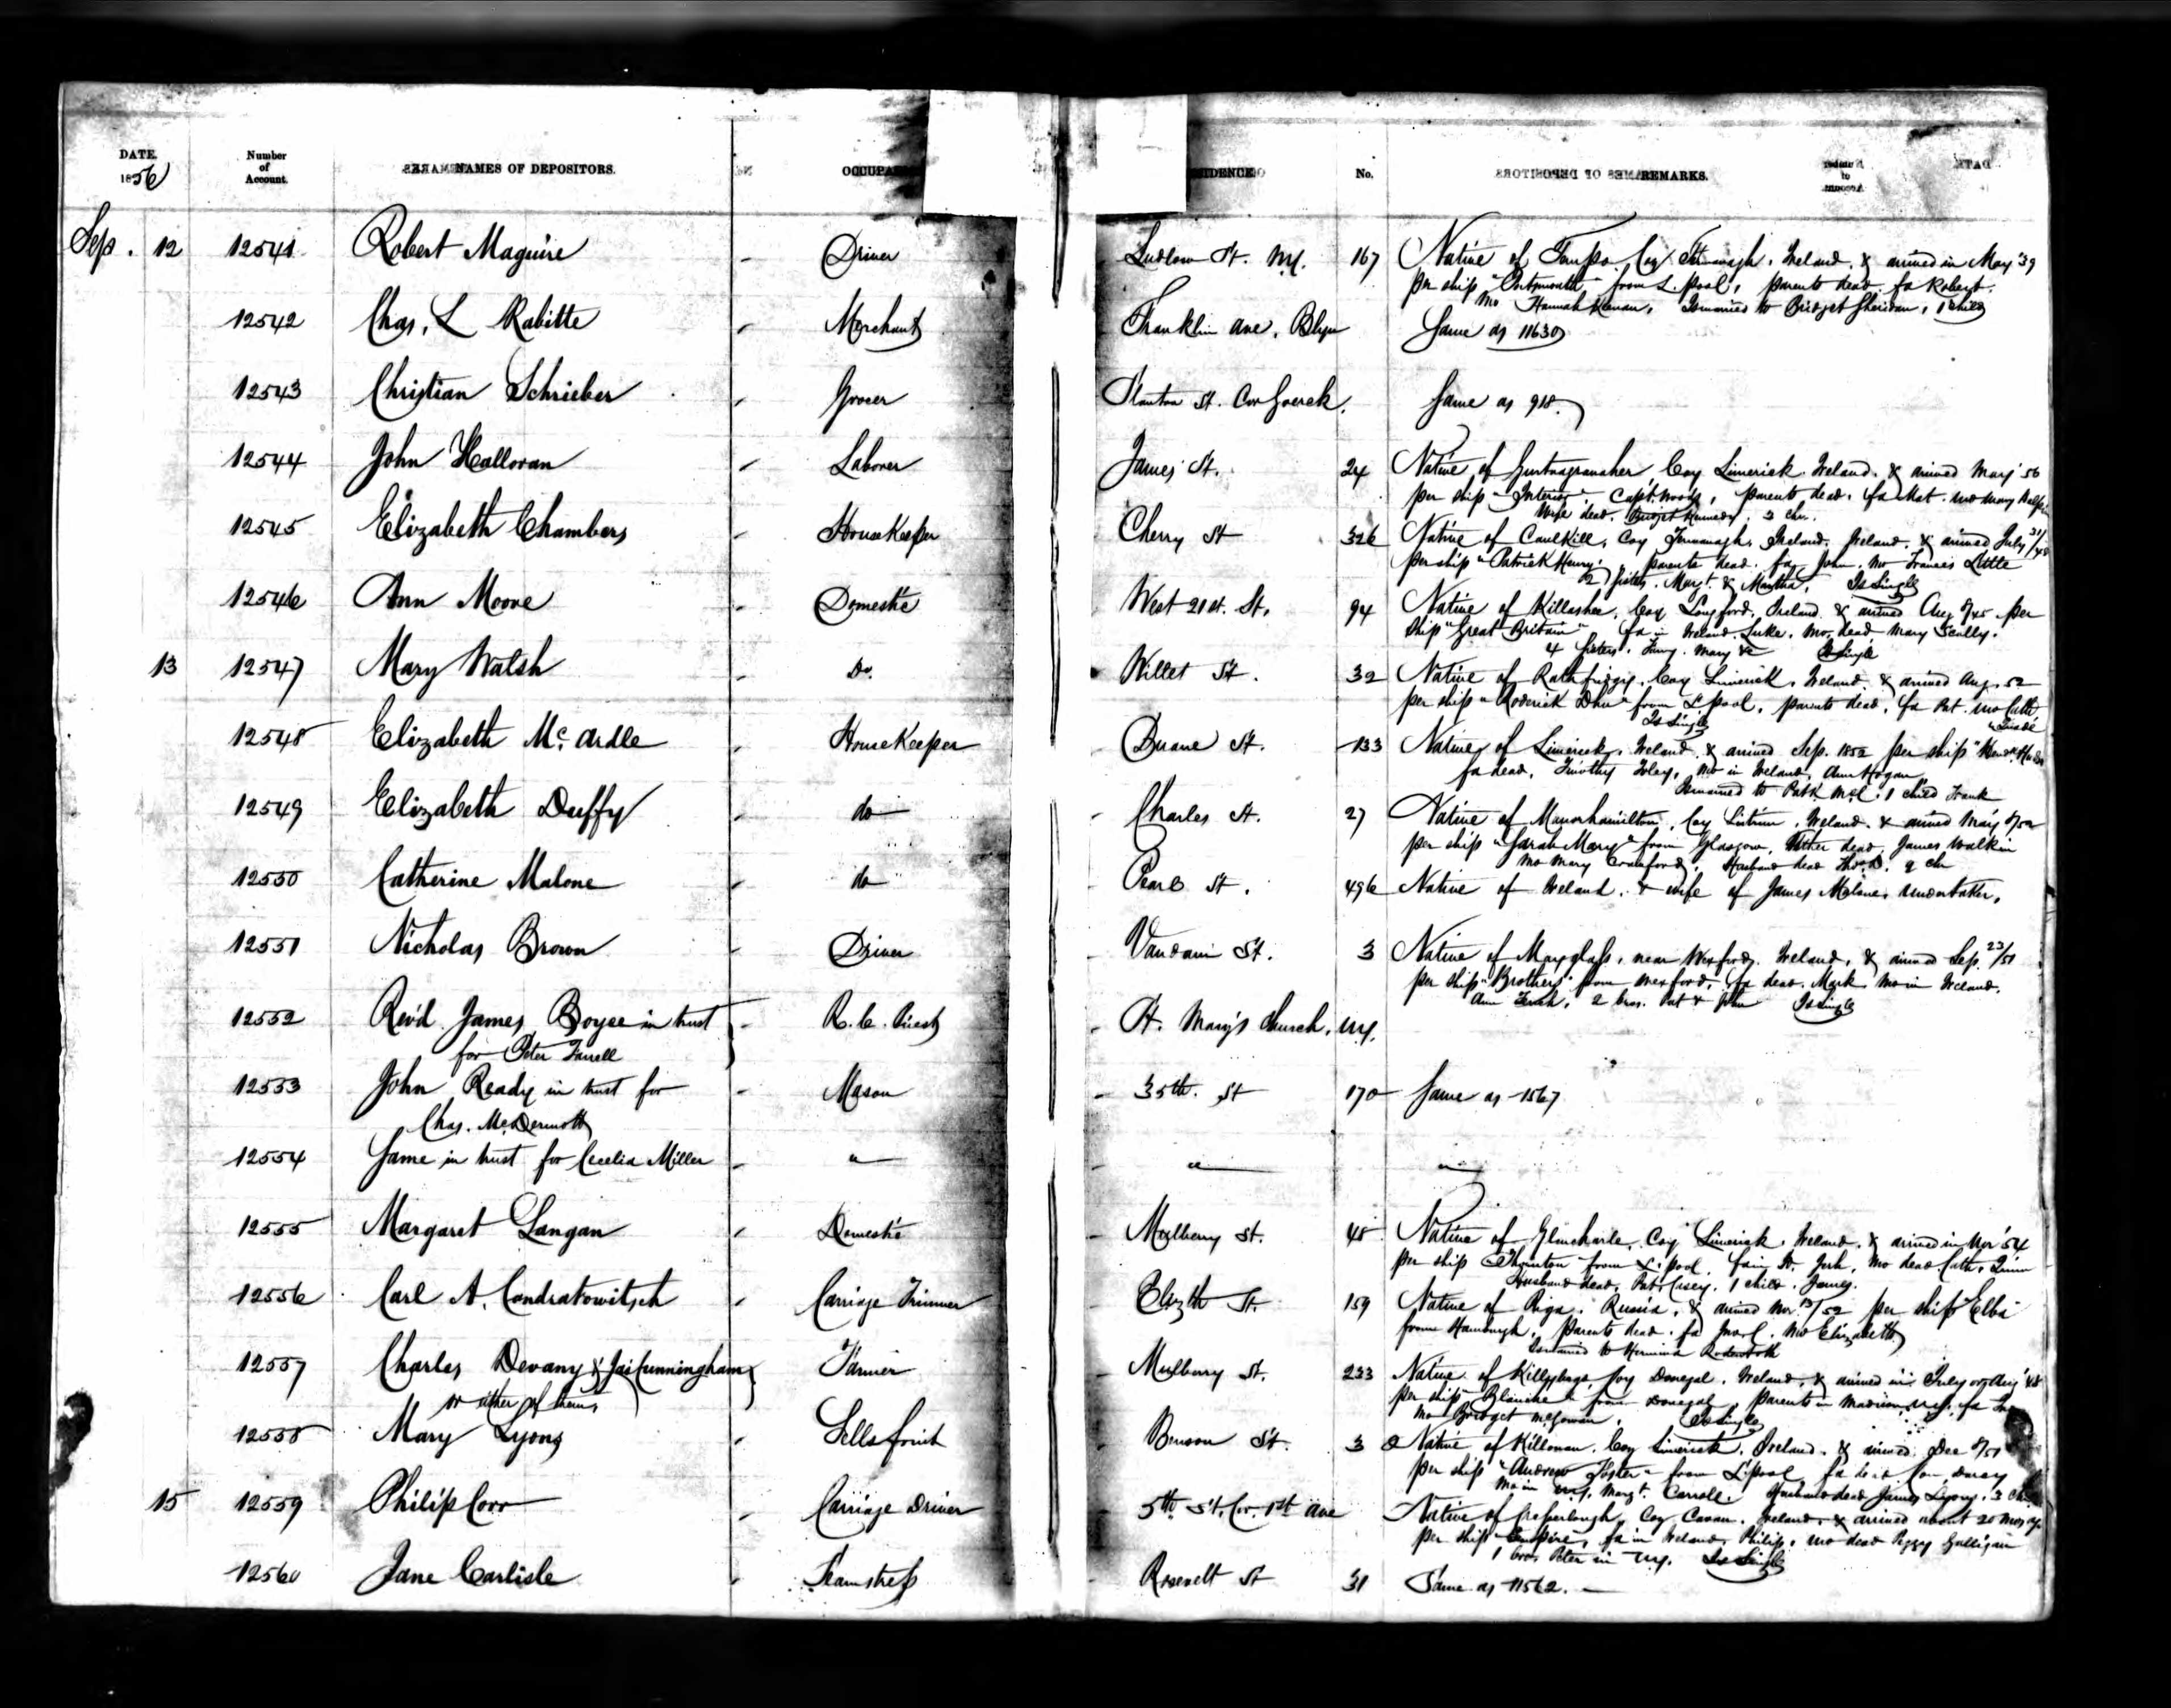 DATE. Number of Account. NAMES OF DEPOSITORS. OCCUPA IDENCE No. REMARKS.
1856
Sep. 12 12541 Robert Maguire Driver Ludlow St. N.Y. 167 Native of Tempo Coy Fermanagh, Ireland, & arrived in May '39
per ship "Portsmouth" from L.pool, parents dead. fa Robert.
mo Hannah Keenan, Is married to Bridget Sheridan, 1 child
12542 Chas. L Rabitte Merchant Franklin Ave, Blyn Same as 11630
12543 Christian Schrieber Grocer Stanton St. Cor Goerck. Same as 918.
12544 John Halloran Laborer James St. 24 Native of Coy Limerick Ireland. & arrived May '56
per ship Capt. Woods, parents dead. fa Mat. mo Mary
Wife dead. Bridget Kennedy. 3 chn.
12545 Elizabeth Chambers HouseKeeper Cherry St 326 Native of Caulkill, Coy Fermanagh, Ireland. Ireland. & arrived July 31/48
per ship "Patrick Henry" parents dead. fa John. mo Frances Little
2 Sisters. Margt. & Martha, Is Single
12546 Ann Moore Domestic West 21st. St, 94 Native of Killashee, Coy Longford, Ireland & arrived Aug 8/45 per
Ship "Great Britain" fa in Ireland Luke. Mo. dead, Mary Scully.
4 Sisters. Mary &c Is Single
13 12547 Mary Walsh Do. Willet St. 32 Native of Coy Limerick, Ireland. & arrived Aug. 52
per ship "Roderick Dhu" from L'pool, parents dead, fa Pat. mo Cath
Is Single
12548 Elizabeth Mc. Ardle HouseKeeper Duane St. 133 Native of Limerick, Ireland & arrived Sep. 1852 per ship
fa dead, Timothy Foley, mo in Ireland, Ann Hogan
Is married to Patk McC. 1 child Frank
12549 Elizabeth Duffy do Charles St. 27 Native of Manorhamilton, Coy Leitrim, Ireland. & arrived May
per ship "Sarah Mary" from Glasgow, Father dead, James
mo Mary Crawford, Husband dead Thos. D. 2 chn
12550 Catherine Malone do Pearl St. 496 Native of Ireland. & wife of James Malone, Undertaker,
12551 Nicholas Brown Driver Vandam St. 3 Native of Maryglass, near Wexford, Ireland, & arrived Sep. 23/51
per ship "Brothers" from Wexford, fa dead. Mark. Mo in Ireland.
Ann 2 bros. Pat & John Is single
12552 Rev'd James Boyce in trust R. C. Priest St. Mary's Church, N.Y.
for Peter Farrell
12553 John Ready in trust for Mason 35th. St 170 Same as 1567
Chas. McDermott
12554 Same in trust for Cecelia Miller " " "
12555 Margaret Langan Domestic Mulberry St. 48 Native of Coy Limerick, Ireland, & arrived in Nov '54
per ship Thornton from L'pool. mo dead. Cath. Quinn
Husband dead, Pat. Casey. 1 child. James.
12556 Carl A. Condratowitsch Carriage Trimmer Elizth St. 159 Native of Riga, Russia, & arrived Nov 13/52 per ship "Elba"
from Hamburgh. parents dead. fa mo Elizabeth
Is married to Hermina
12557 Charles Devany & Jas Cunningham Farmer Mulberry St. 233 Native of Killybegs Coy Donegal, Ireland, & arrived in July or Aug '48
or either of them
per ship "Blanche" from Donegal, parents in Madison N.Y. fa
mo Bridget McGowan, Is single
12558 Mary Lyons Sells fruit Benson St. 3 Native of Coy Limerick, Ireland. & arrived Dec
per ship "Andrew Foster" from L'pool, fa Darcy
Mo in N.Y. Margt. Carroll. Husband dead James Lyons. 3
15 12559 Philip Corr Carriage Driver 5th St. Cor. 1st Ave Native of Coy Cavan. Ireland. & arrived about 20 mos ago
per ship "Empire", fa in Ireland, Philip, mo dead Peggy Galligan
1 bro, Peter in N.Y. Is Single
12560 Jane Carlisle Seamstress Rosevelt St 31 Same as 11562.